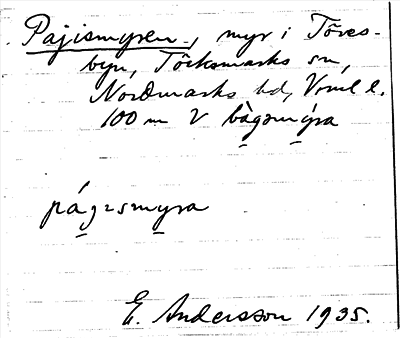 Pajismyren, myr i Töres-
byn, Töcksmarks sn,
Nordmarks hd, Vrml l.
100 m V bågsmýra
págɩsmyra
E. Andersson 1935.